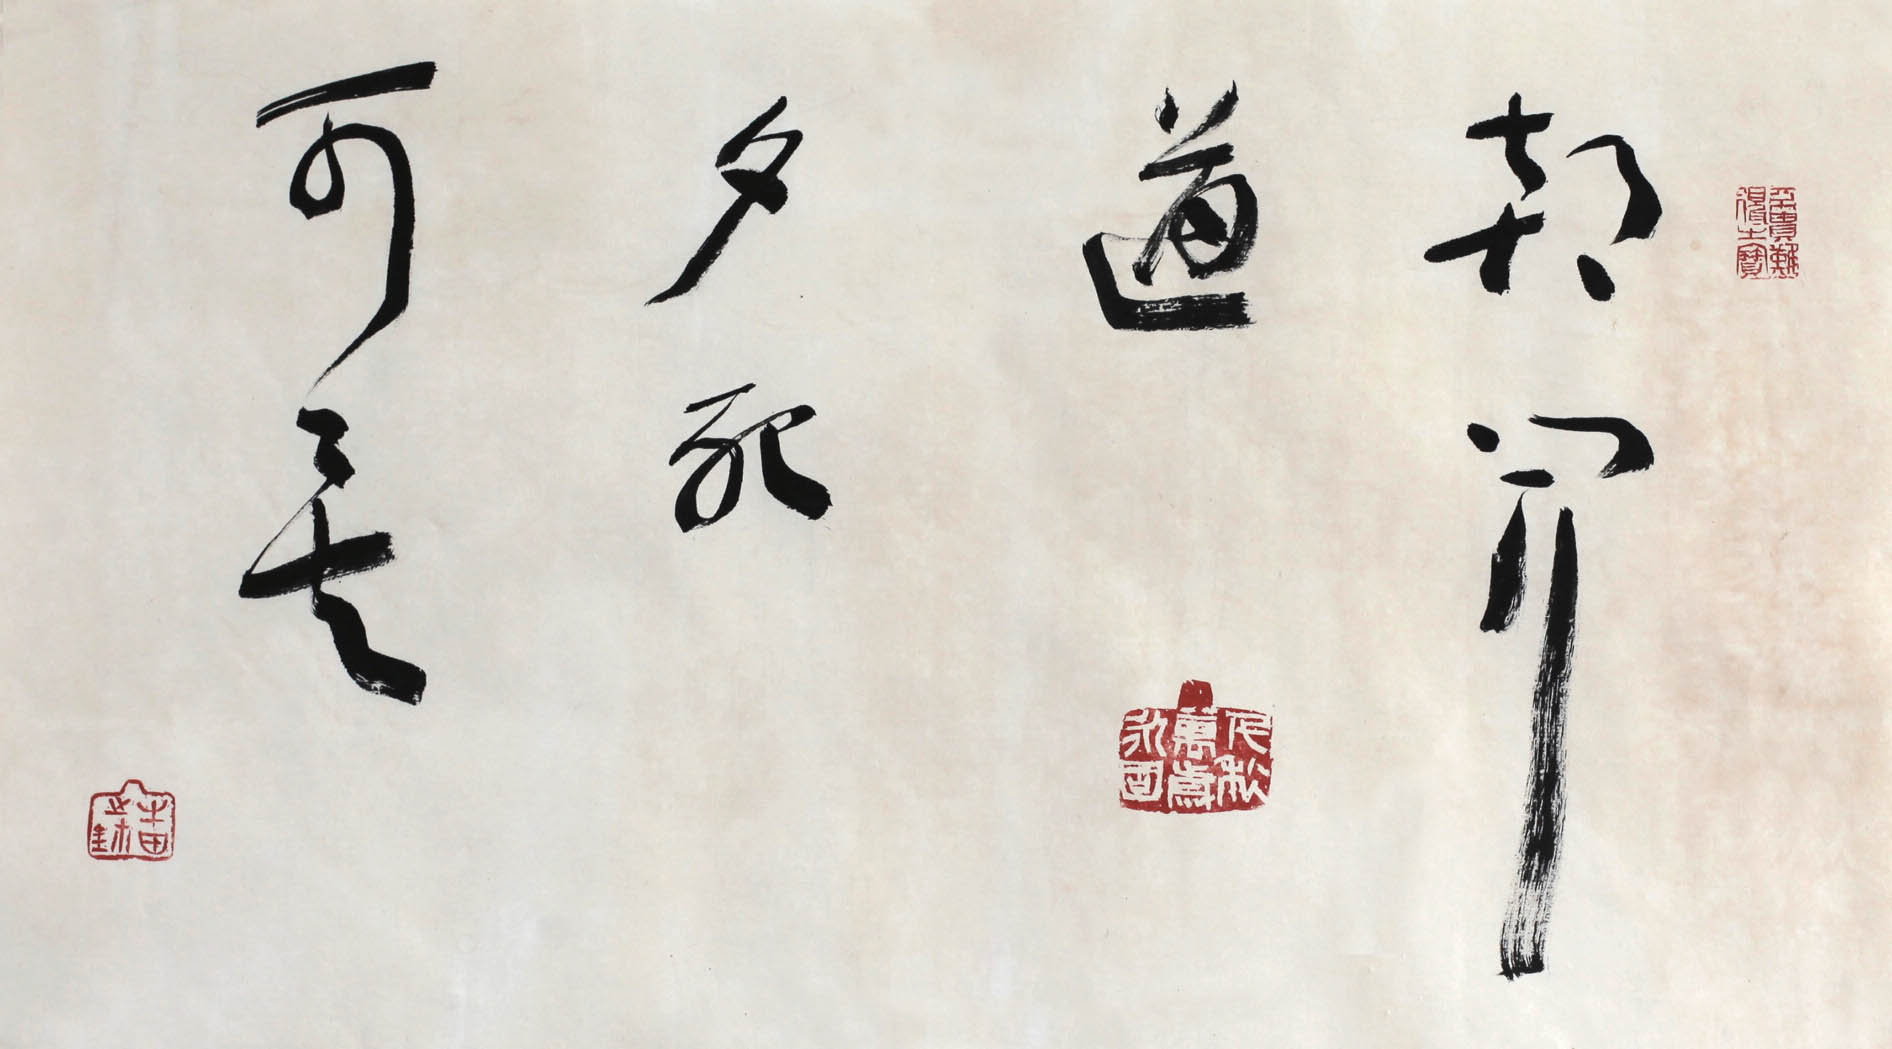 朝闻
道
夕死
可矣